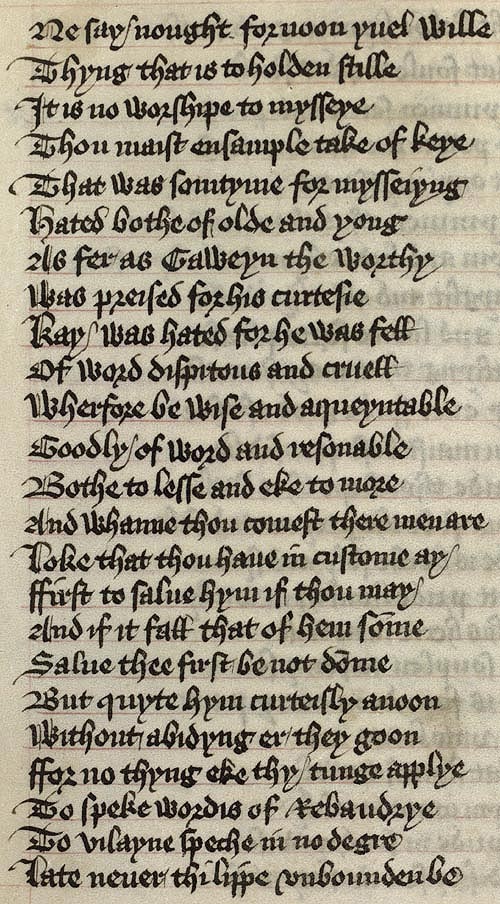 Ne say nought for noon yuel wille
Thyng that is to holden stille
It is no worshipe to mysseye
Thou maist ensample take of keye
That was somtyme for mysseiyng
Hated bothe of olde and yong
As fer as Gaweyn the worthy
Was preised for his curtesie
Kay was hated for he was fell
Of word dispitous and cruell
Wherfore be wise and aqueyntable
Goodly of word and resonable
Bothe to lesse and eke to more
And whanne thou comest there men are
Loke that thou haue in custome ay
ffirst to salue hym if thou may
And if it fall that of hem some
Salue thee first be not dome
But quyte hym curteisly anoon
Without abidyng er they goon
ffor no thyng eke thy tunge applye
To speke wordis of Rebaudrye
To vilayne speche in no degre
Late neuer thi lippe vnbounden be